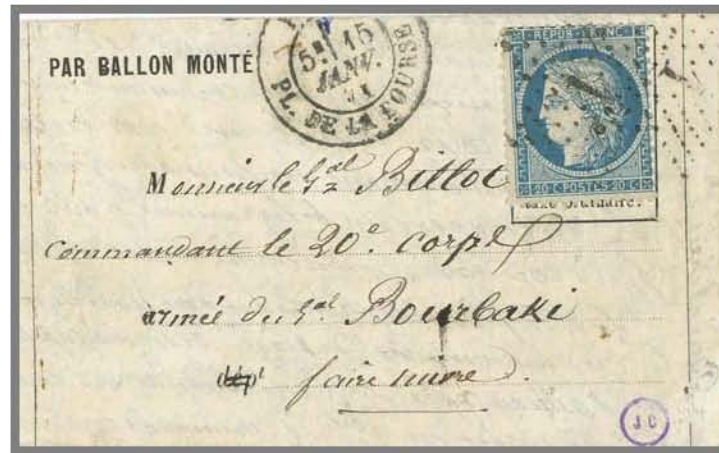 PAR BALLON MONTÉ
5E/15
JANV.
71
PL. DE LA BOURSE
REPUB. FRANC.
20 C POSTES 20 C
taxe ordinaire.
Monsieur le Gal Billot
Commandant le 20e corps
armée du Gal Bourbaki
dépt faire suivre.
J C